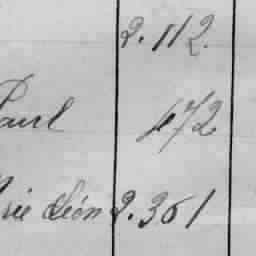 2.112.
Paul 472
rie Léon 2.351